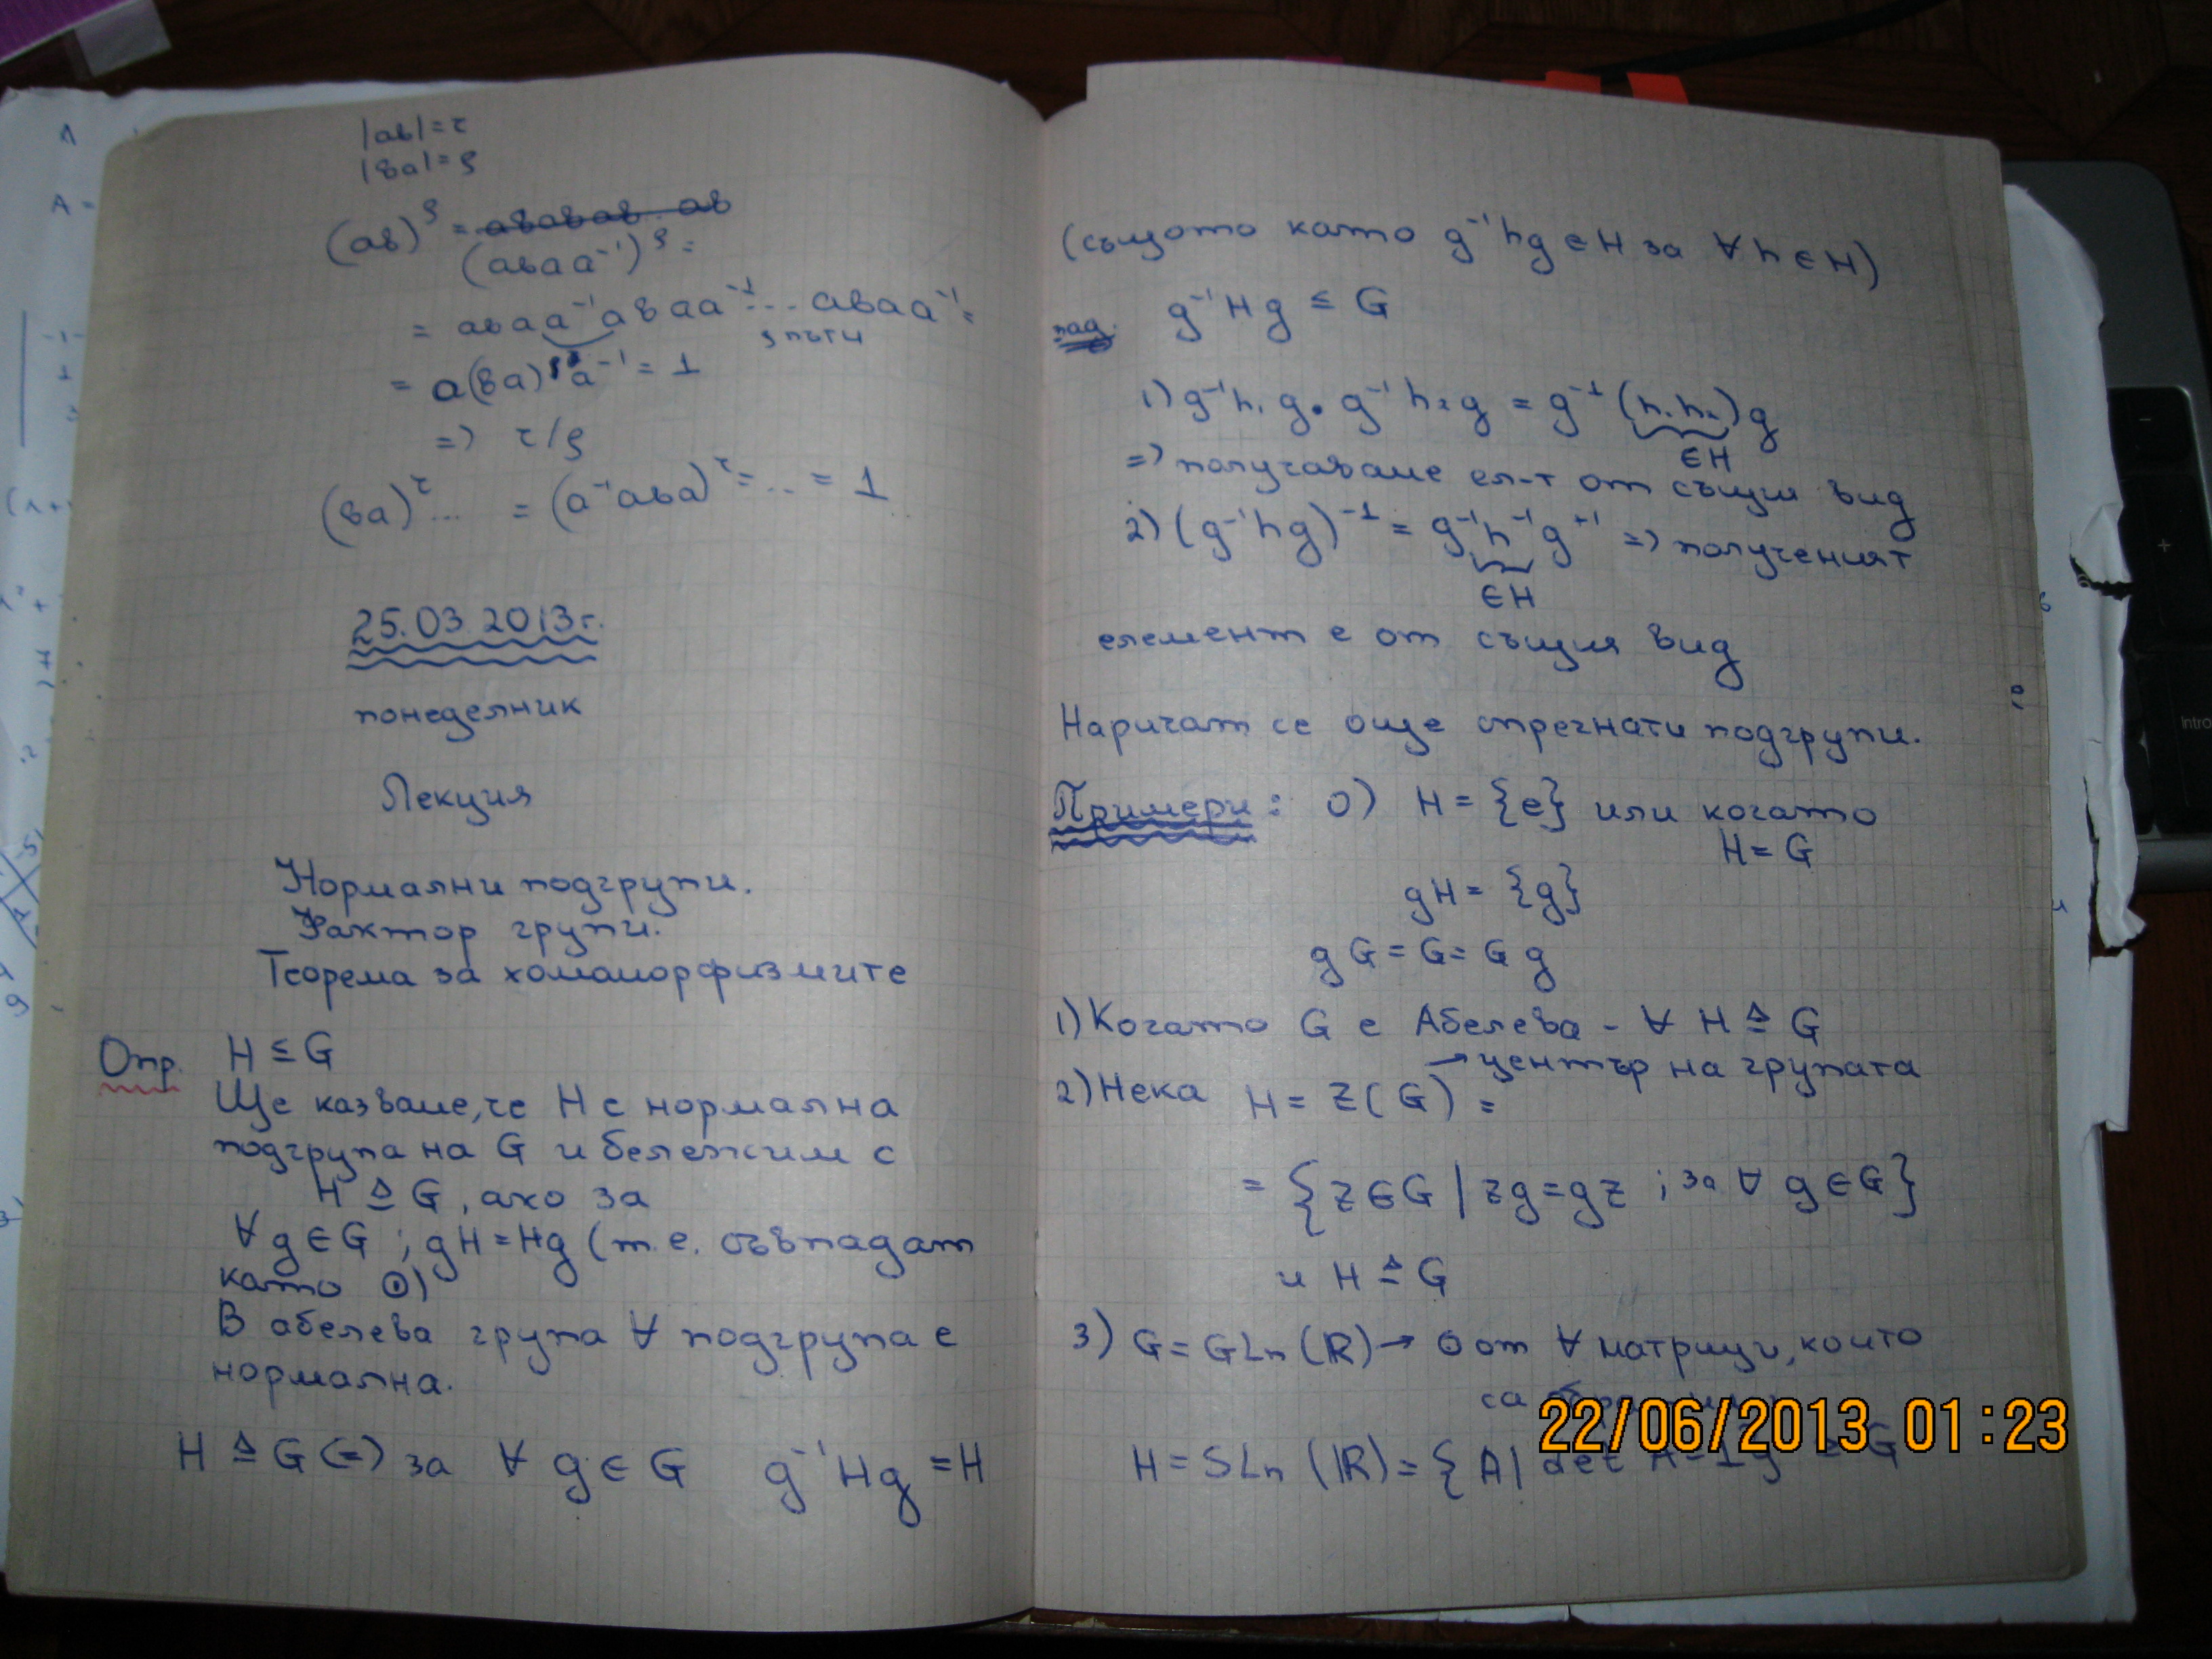 |ab| = r
|ba| = s
(ab)^s = ababab...ab
(abaa⁻¹)^s =
= abaa⁻¹abaa⁻¹... abaa⁻¹ =
s пъти
= a(ba)^s a⁻¹ = 1
=> r/s
(ba)^r ... = (a⁻¹aba)^r = ... = 1
25.03.2013г.
понеделник
Лекция
Нормални подгрупи.
Фактор групи.
Теорема за хомоморфизмите
Опр. H ≤ G
Ще казваме, че H е нормална
подгрупа на G и бележим с
H ⊴ G, ако за
∀ g ∈ G ; gH = Hg (т.е. съвпадат
като ⊙)
В абелева група ∀ подгрупа е
нормална.
H ⊴ G (=) за ∀ g ∈ G g⁻¹Hg = H
(същото като g⁻¹hg ∈ H за ∀ h ∈ H)
g⁻¹Hg ≤ G
1) g⁻¹h₁g . g⁻¹h₂g = g⁻¹(h₁h₂)g
∈H
=> получаваме ел-т от същия вид
2) (g⁻¹hg)⁻¹ = g⁻¹h⁻¹g⁺¹ => полученият
∈H
елемент е от същия вид
Наричат се още спрегнати подгрупи.
Примери: 0) H = {e} или когато
H = G
gH = {g}
gG = G = Gg
1) Когато G е Абелева - ∀ H ⊴ G
→ център на групата
2) Нека H = Z(G) =
= {z ∈ G | zg = gz ; за ∀ g ∈ G}
и H ⊴ G
3) G = GLn(R) → 0 от ∀ матрици, които
са
22/06/2013 01:23
H = SLn(R) = {A | det A = 1} G